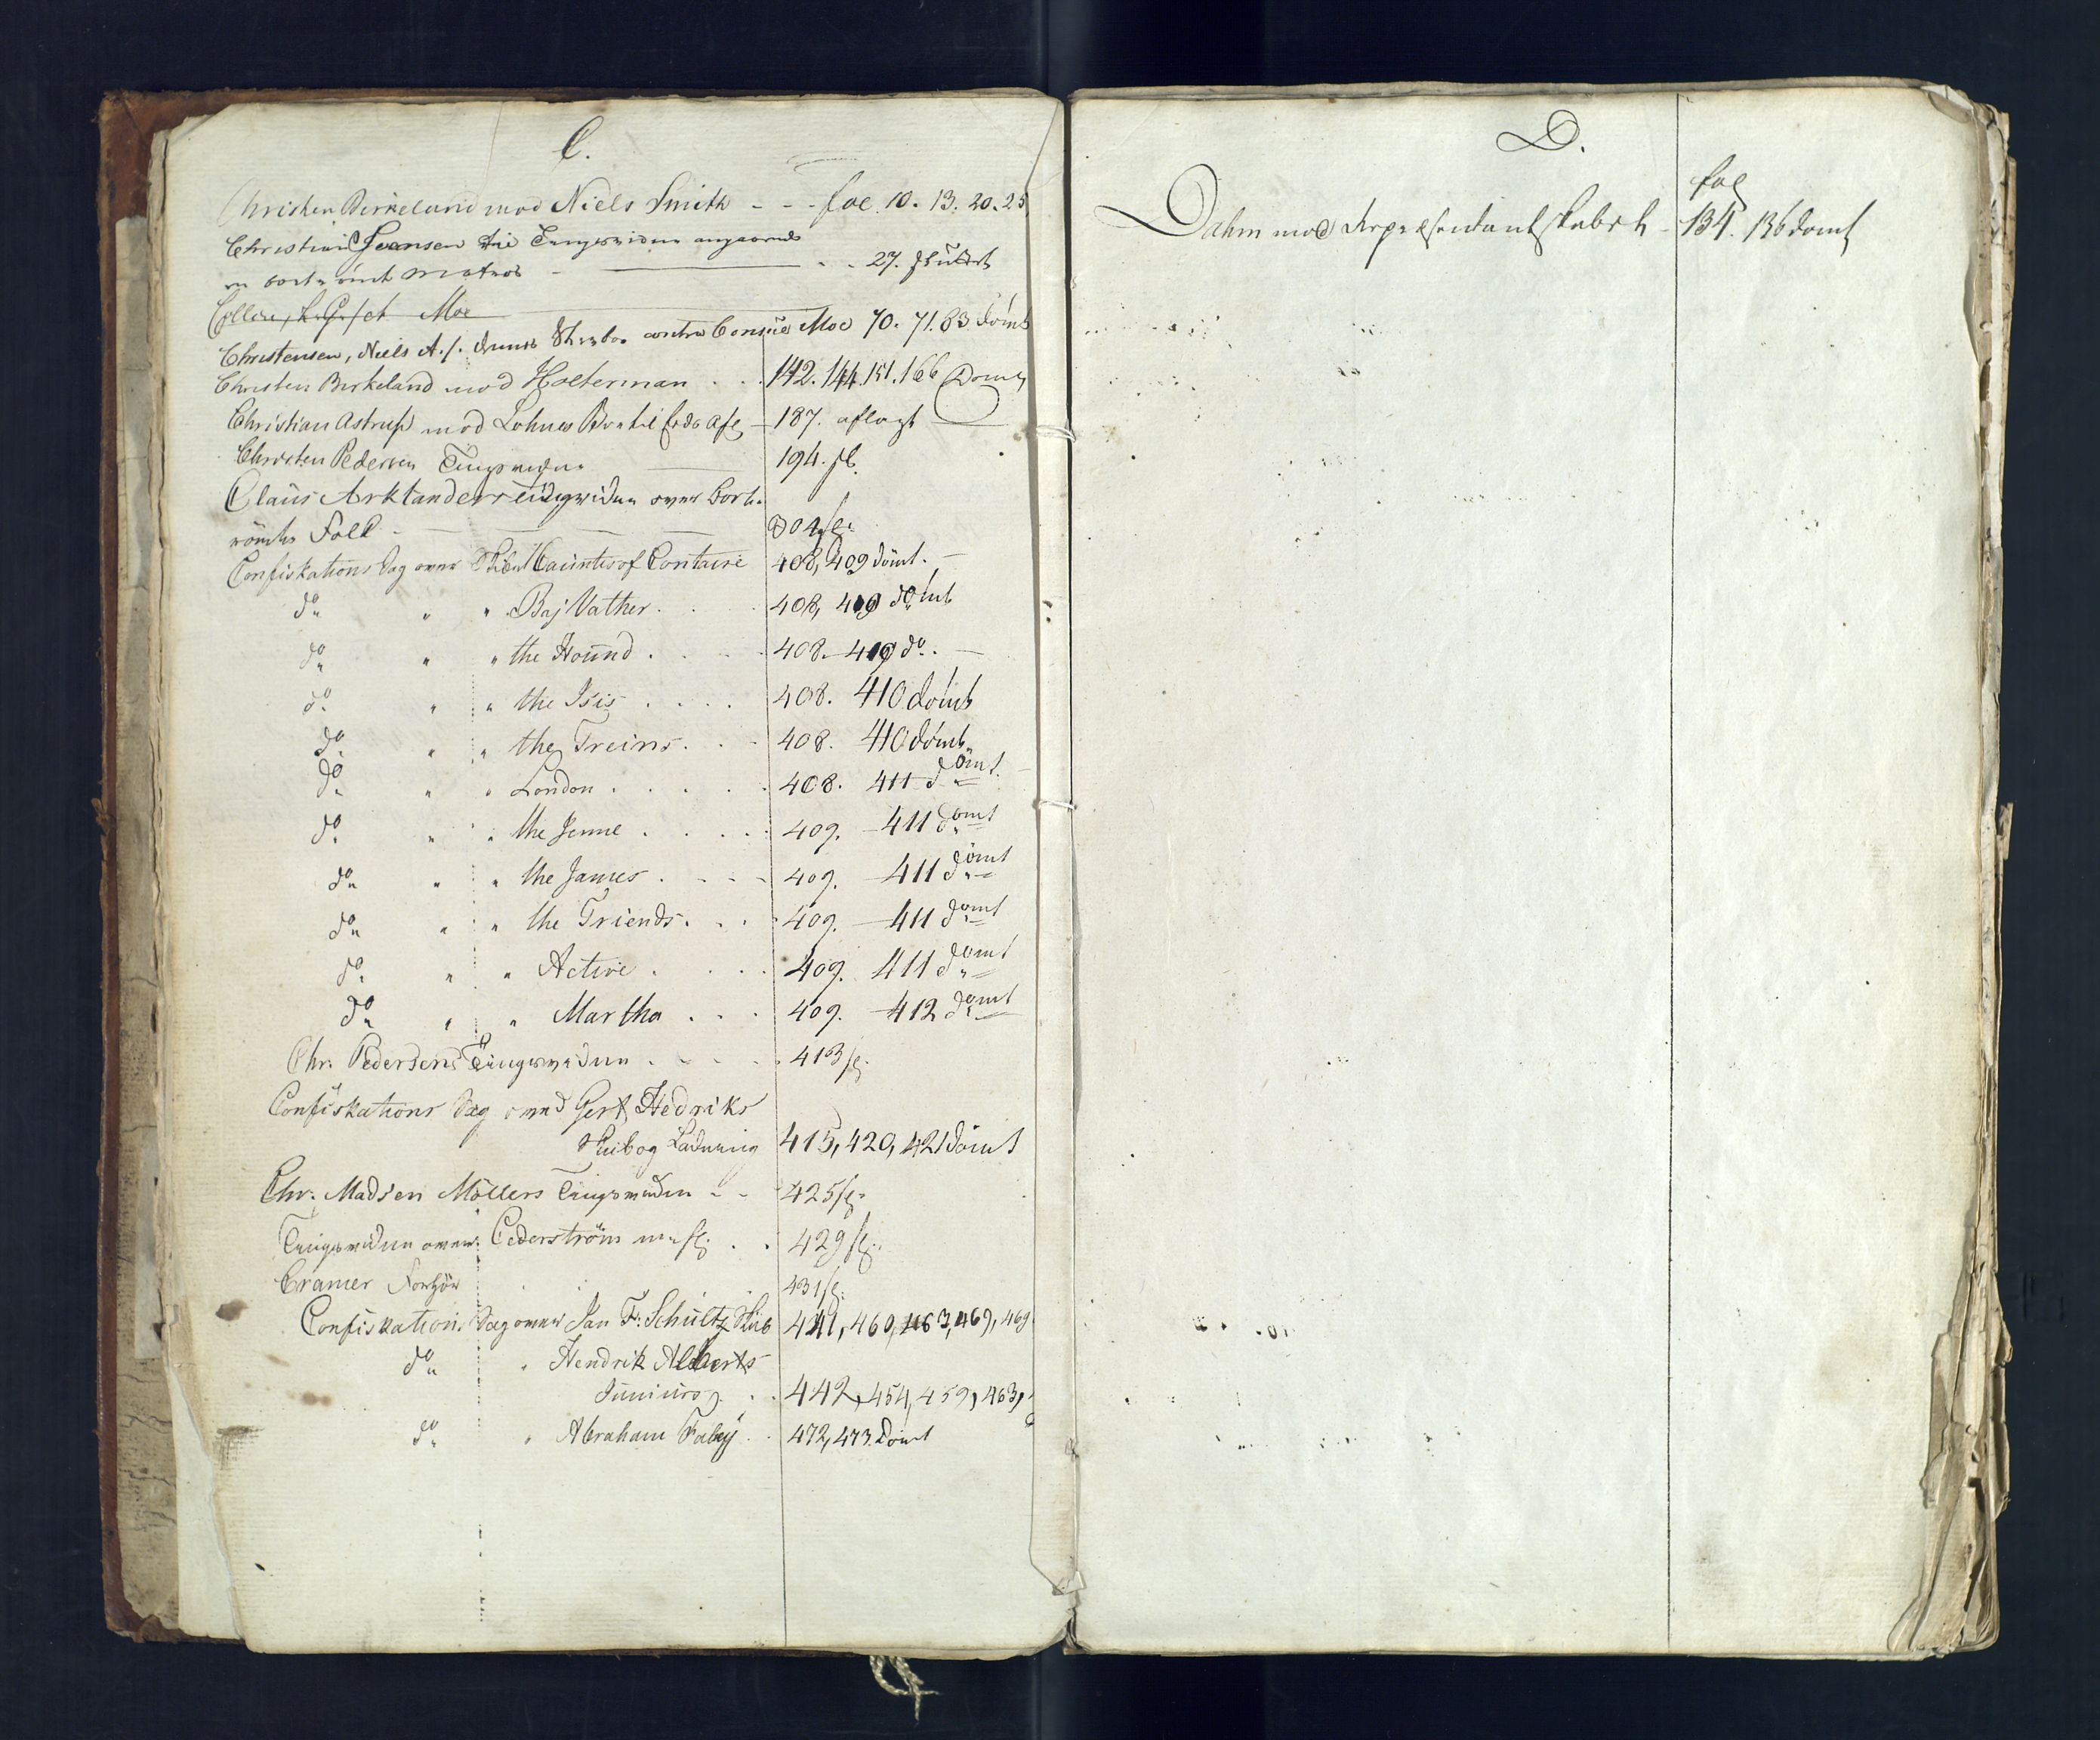 C.
Christen Birkeland mod Niels Smith - - - fol. 10. 13. 20. 25
Christian Svensen Tingsvidne angaaende
en bort römt Matros - 27. sluttet
Collin, L. G. /ct Moe
Christensen, Niels A./. contra Consul Moe 70. 71. 83 dömt
Christen Birkeland mod Holterman . . 142. 144. 151. 166 Dömt
Christian Astrup mod 187. aflagt
Christen Pedersen Tingsvidne 194. sl.
Claus Arktanders Tingsvidne over bort-
römte Folk - 304 sl.
Confiskations Sag over Skibet Countes of Contaire 408, 409 dömt.
do " " Baj Vather . 408, 409 dömt
do " " the Hound . . . . 408. 409 do. —
do " " the Isis . . . . 408. 410 dömt
do " " the Freins . . - 408. 410 dömt
do " " London . . . . . 408. 411 dömt.
do " " the Jenne . . . . 409. 411 dömt
do " " the James . - - - 409. 411 dömt
do " " the Friends . . . 409. 411 dömt
do " " Active . . . . 409. 411 dömt
do " " Martha . . . 409. 412 dömt
Chr. Pedersens Tingsvidne . . . . 413 sl.
Confiskations Sag over Gert Hedriks
Skib og Ladning 415, 420, 421 dömt
Chr. Madsen Möllers Tingsvidne - - 425 sl.
Tingsvidne over Cederström . . 429 sl.
Cramer Forhör 431 sl.
Confiskations Sag over Jan F. Schultz Skib 441, 460, 463, 469, 469
do " Hendrik Alberts
Juniursg. . . 442, 454, 459, 463,
do " Abraham Fabÿ . . 472, 473. Dömt
D.
fol
Dahm mod Repræsentantskabet - 134. 136 dömt